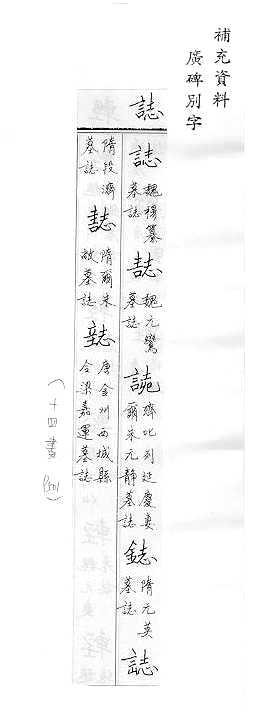 補充資料
廣碑別字
誌
誌 魏穆纂墓誌 誌 魏元鸞墓誌 誌 齊比列延慶妻爾朱元静墓誌 誌 隋元英墓誌 誌
隋段濟墓誌 誌 隋爾朱敞墓誌 誌 唐金州西城縣令梁嘉運墓誌
(十四畫